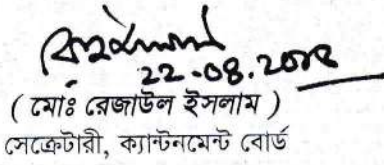 22.08.2018
( মোঃ রেজাউল ইসলাম )
সেক্রেটারী, ক্যান্টনমেন্ট বোর্ড